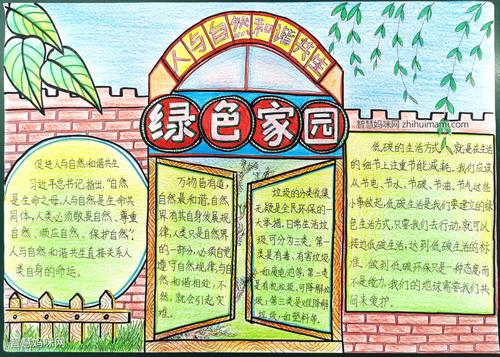 人与自然和谐共生
智慧妈咪网 zhihuimami.com
绿色家园
促进人与自然和谐共生
习近平总书记指出,“自然
是生命之母,人与自然是生命共
同体,人类必须敬畏自然、尊重
自然、顺应自然、保护自然”。
人与自然和谐共生直接关系人
类自身的命运。
万物皆有道,
自然最和谐,自然
界有其自身发展规
律,人类只是自然界
的一部分,必须自觉
遵守自然规律,与自
然和谐相处,不
然,就会引起灾
难。
垃圾的分类收集
无疑是全民环保的
一大举措。日常生活垃
圾可分为三类。第一
类是有毒、有害垃圾,
如废电池等,第二类
是有机垃圾,可降解垃
圾,第三类是难降解
垃圾,如塑料等。
低碳的生活方式,就是在生活
的细节上注重节能减耗,我们应该
从节电、节水、节碳、节油、节气这些
小事做起,低碳生活是我们要建立的绿
色生活方式,只要我们去行动,就可以
接近低碳生活,达到低碳生活的标
准,做到低碳环保只是一种态度而
不是能力,我们的地球需要我们共
同来爱护。
智慧妈咪网